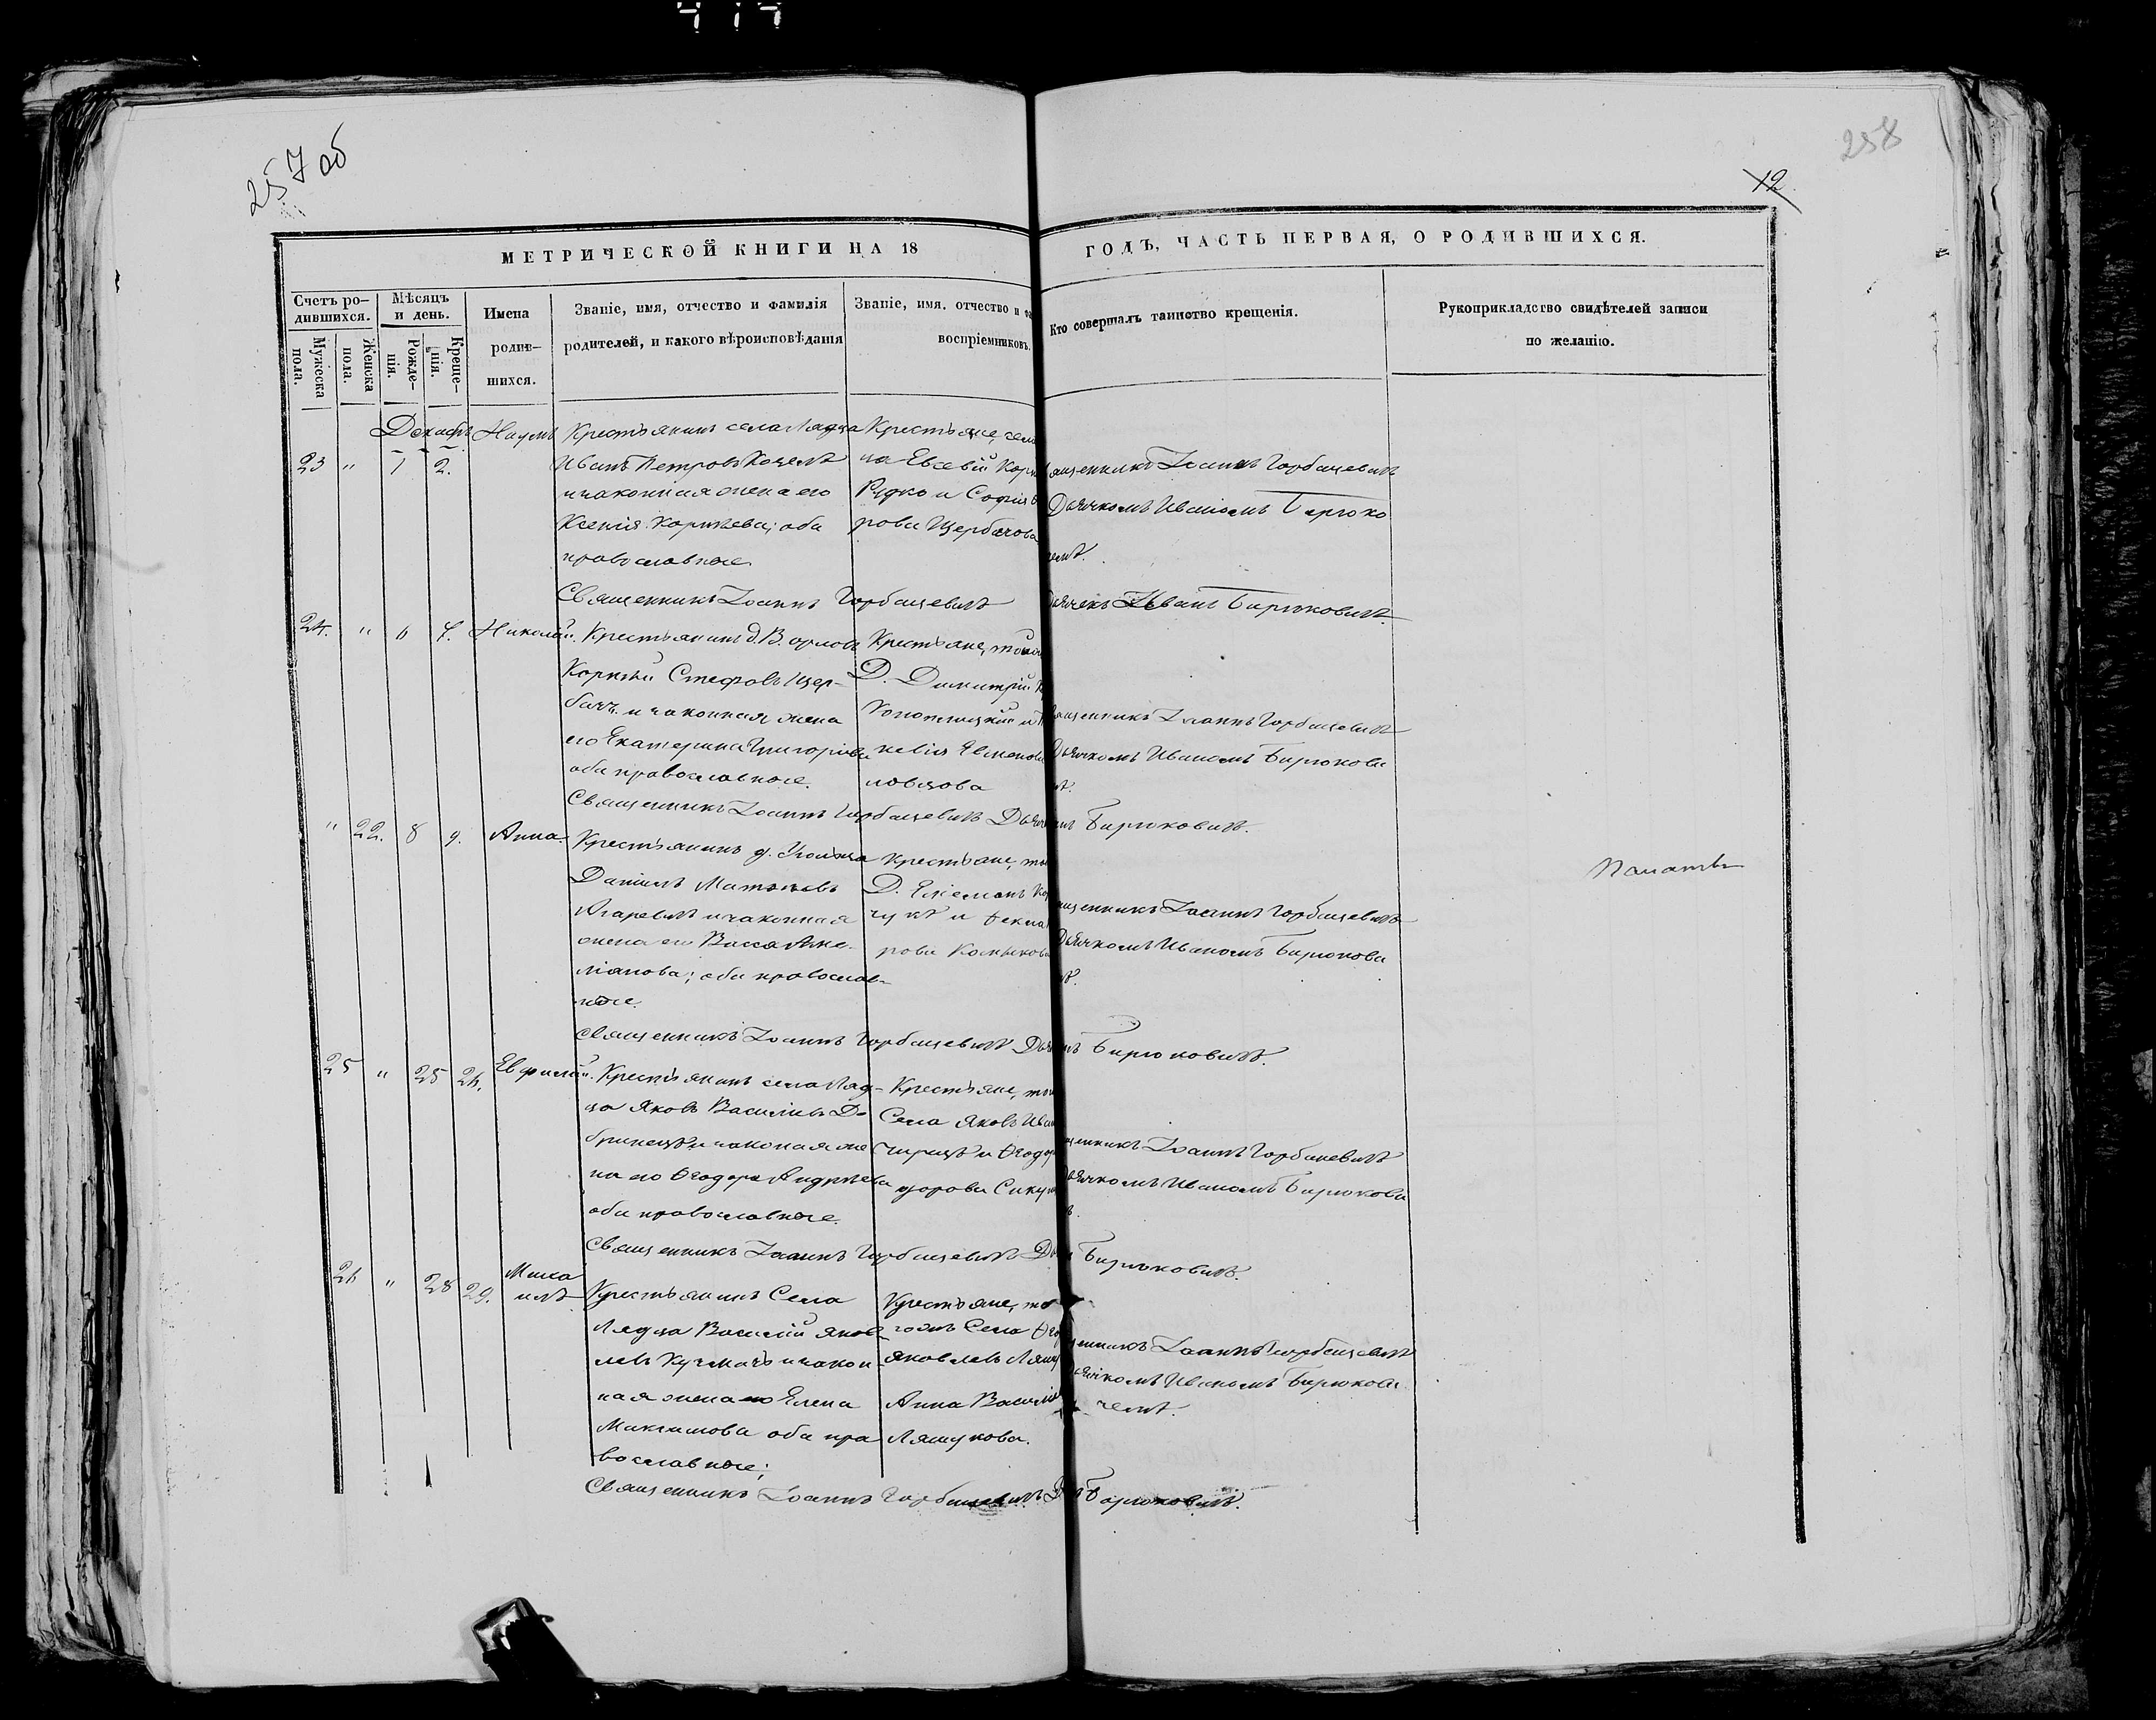 257 об
258
12
МЕТРИЧЕСКОЙ КНИГИ НА 18
ГОДЪ, ЧАСТЬ ПЕРВАЯ, О РОДИВШИХСЯ.
Счетъ ро-
дившихся.
Мужеска
пола.
Женска
пола.
Мѣсяцъ
и день.
Рожде-
нія.
Креще-
нія.
Имена
родив-
шихся.
Званіе, имя, отчество и фамилія
родителей, и какого вѣроисповѣданія
Званіе, имя, отчество и фа
воспріемниковъ.
Кто совершалъ таинство крещенія.
Рукоприкладство свидѣтелей записи
по желанію.
Декабрь
23 " 1 2.
Наумъ
Крестьянинъ села Лядца
Иванъ Петровъ
и законная жена его
Ксенія Корнѣева; оба
православные.
Крестьяне, села
ца Евсевій Корн
Рудко и Софія
рова Щербачова
ященникъ Іоаннъ Горбацевичъ
Дьячкомъ Иваномъ Бирюко
чемъ.
Священникъ Іоаннъ Горбацевичъ
Дьячекъ Иванъ Бирюковичъ.
24. " 6 7.
Николай.
Крестьянинъ д. В. орловъ
Корнѣй Стефовъ Щер-
бачъ и законная жена
его Екатерина Григорьева
оба православные.
Крестьяне, тойже
Д. Димитрій
ященникъ Іоаннъ Горбацевичъ
Дьячкомъ Иваномъ Бирюкови
Священникъ Іоаннъ Горбацевичъ Дьяч
нъ Бирюковичъ.
" 22. 8 9.
Анна.
Крестьянинъ д.
Даніилъ
и законная
жена его Васса
оба православ-
ные.
Крестьяне, той
Д.
и Фекла
рова
ященникъ Іоаннъ Горбацевичъ
Дьячкомъ Иваномъ Бирюкови
Священникъ Іоаннъ Горбацевичъ Дьяч
нъ Бирюковичъ.
25 " 25 26.
Евфимій.
Крестьянинъ села Ляд-
ца Яковъ Васильевъ До
бринецъ и законая же
на его Ѳеодора Андрѣева
оба православные.
Крестьяне, того
Села Яковъ Иван
и Ѳеодор
щенникъ Іоаннъ Горбацевичъ
Дьячкомъ Иваномъ Бирюкови
Священникъ Іоаннъ Горбацевичъ Дь
Бирюковичъ.
26 " 28 29.
Миха
илъ
Крестьянинъ Села
Лядца Василій Яков
левъ Кучмачъ и закон
ная жена его Елена
Максимова оба пра
вославные;
Крестьяне, то
гожъ Села Ѳео
Яковлевъ Ляшу
Анна Василь
Ляшукова.
щенникъ Іоаннъ Горбацевичъ
Дьячкомъ Иваномъ Бирюкови
чемъ.
Священникъ Іоаннъ Горбацевичъ Д
Бирюковичъ.